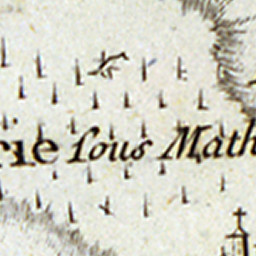 rie sous Math